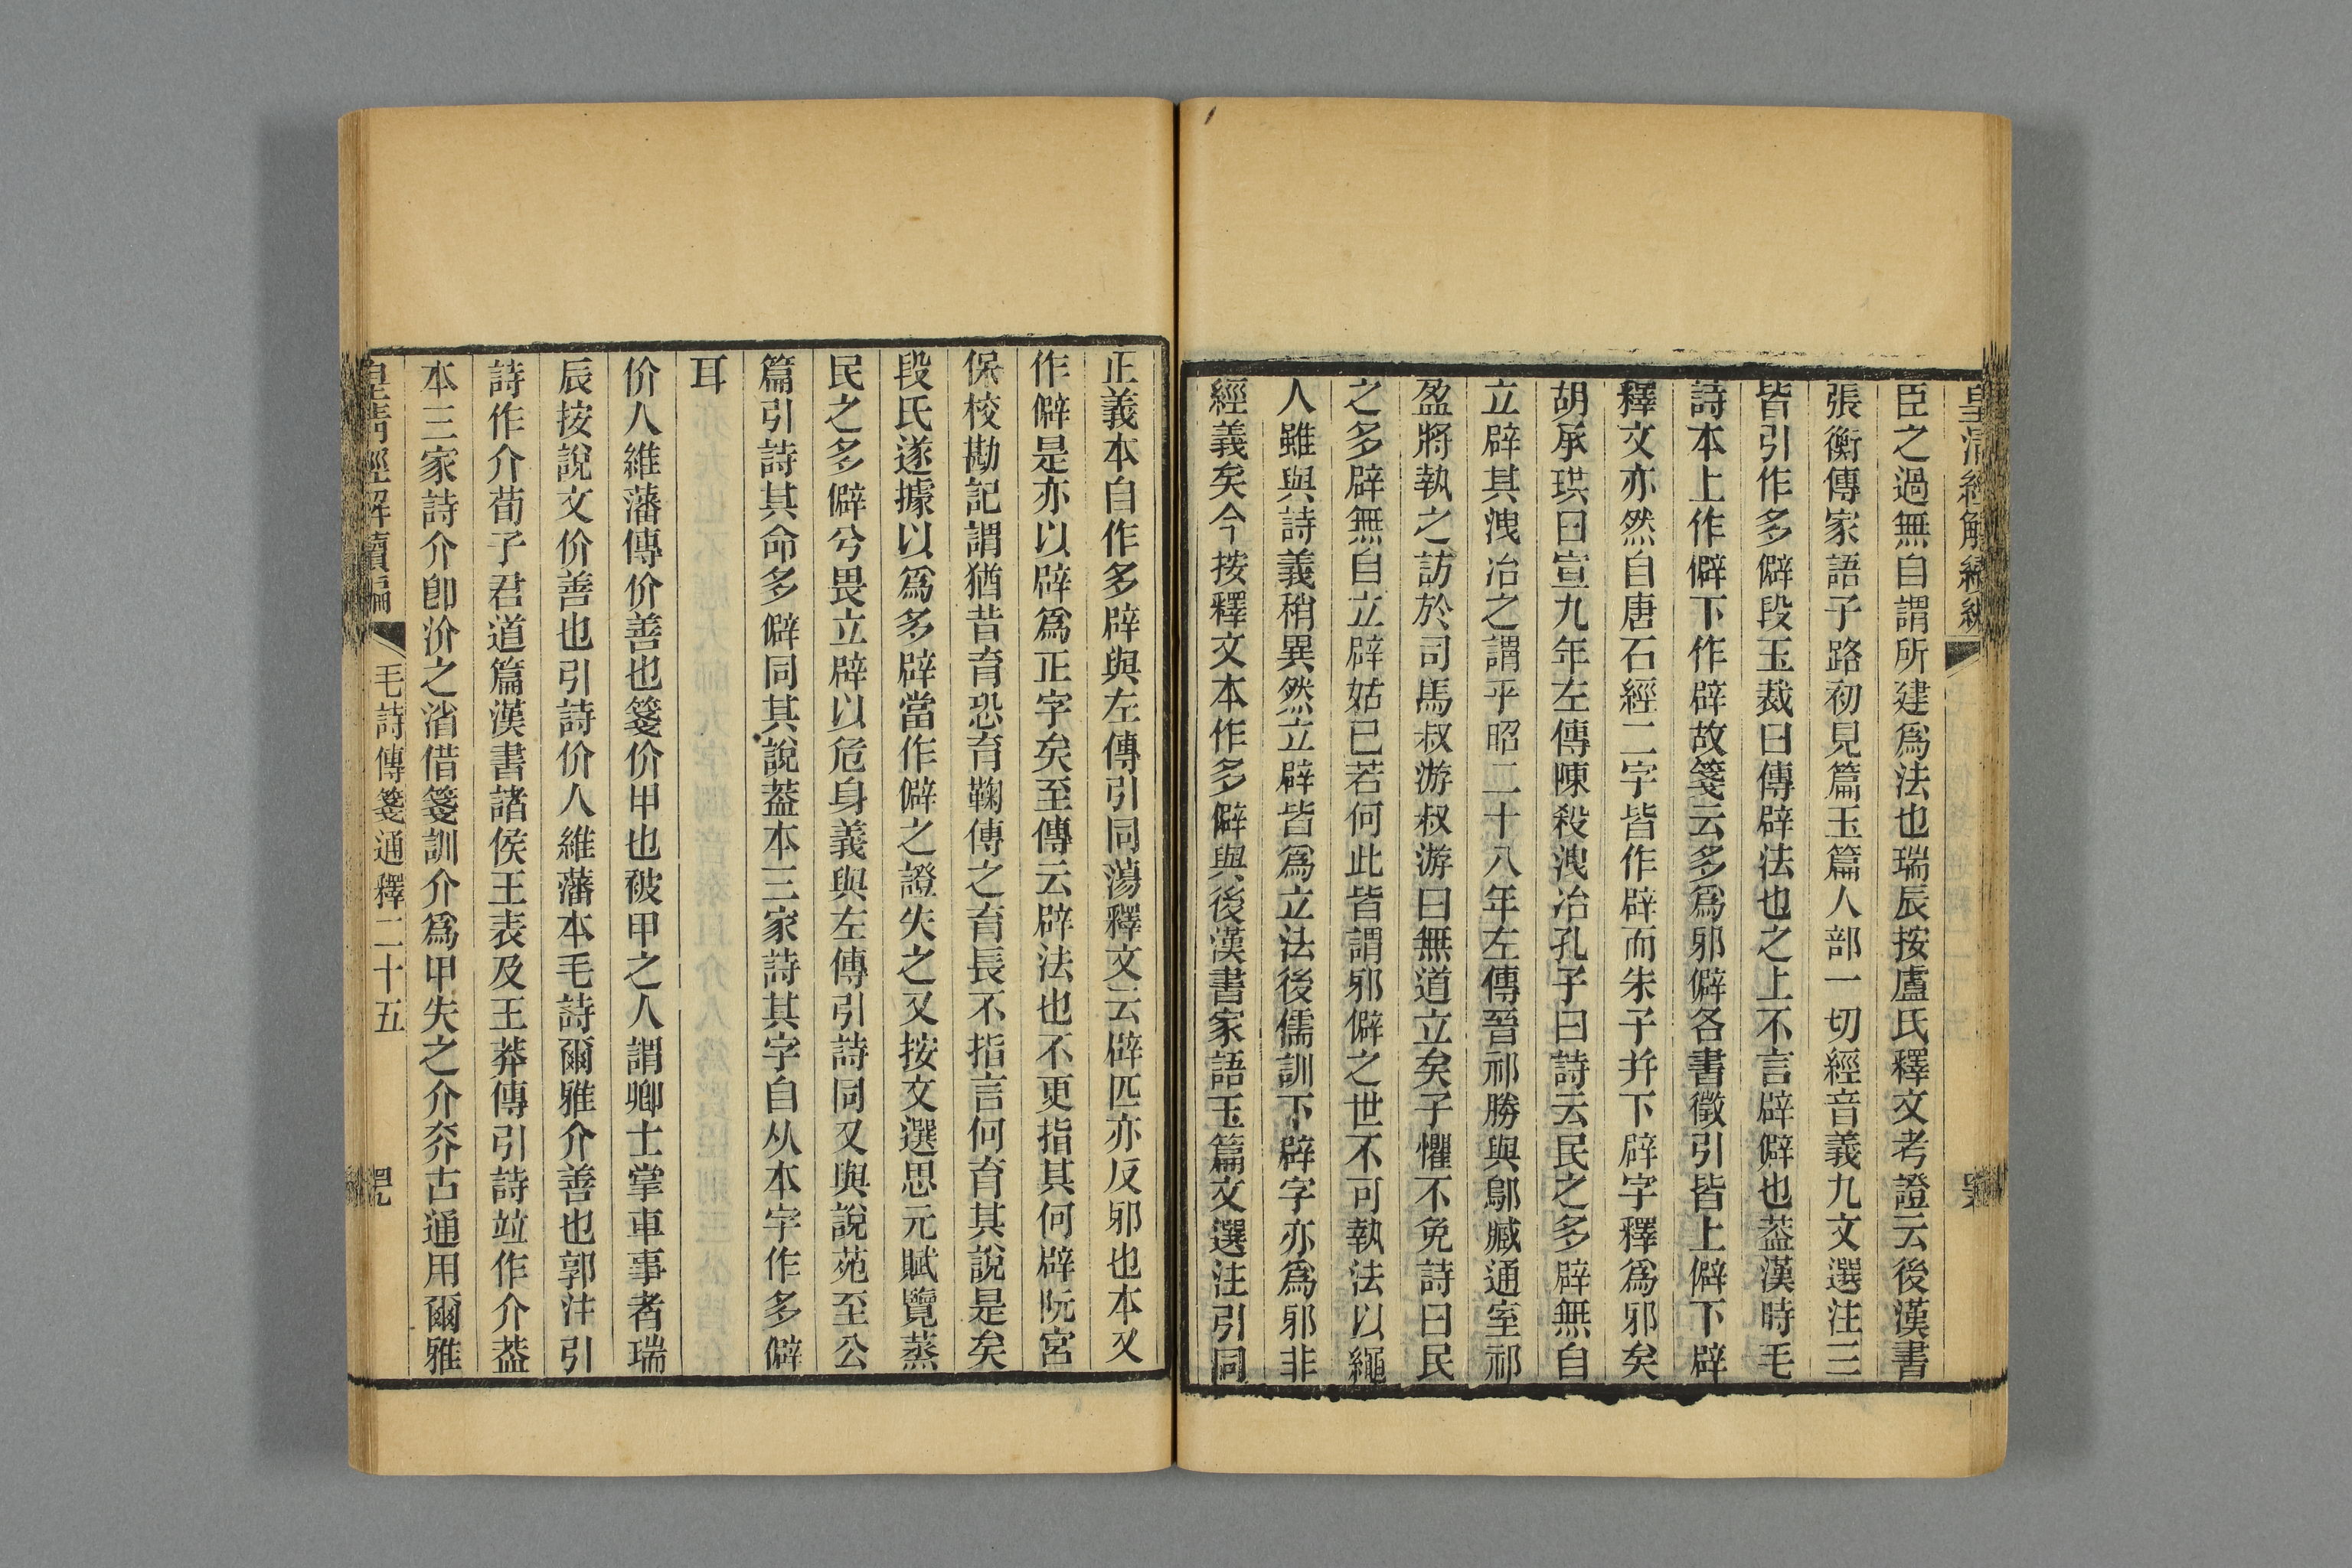 皇清經解續編
臣之過無自謂所建爲法也瑞辰按盧氏釋文考證云後漢書
張衡傳家語子路初見篇玉篇人部一切經音義九文選注三
皆引作多僻段玉裁曰傳辟法也之上不言辟僻也葢漢時毛
詩本上作僻下作辟故箋云多爲邪僻各書徵引皆上僻下辟
釋文亦然自唐石經二字皆作辟而朱子幷下辟字釋爲邪矣
胡承珙曰宣九年左傳陳殺洩冶孔子曰詩云民之多辟無自
立辟其洩冶之謂乎昭二十八年左傳晉祁勝與鄔臧通室祁
盈將執之訪於司馬叔游叔游曰無道立矣子懼不免詩曰民
之多辟無自立辟姑已若何此皆謂邪僻之世不可執法以繩
人雖與詩義稍異然立辟皆爲立法後儒訓下辟字亦爲邪非
經義矣今按釋文本作多僻與後漢書家語玉篇文選注引同
正義本自作多辟與左傳引同蕩釋文云辟匹亦反邪也本又
作僻是亦以辟爲正字矣至傳云辟法也不更指其何辟阮宮
保校勘記謂猶昔育恐育鞠傳之育長不指言何育其說是矣
段氏遂據以爲多辟當作僻之證失之又按文選思元賦覽蒸
民之多僻兮畏立辟以危身義與左傳引詩同又與說苑至公
篇引詩其命多僻同其說葢本三家詩其字自从本字作多僻
耳
价人維藩傳价善也箋价甲也被甲之人謂卿士掌軍事者瑞
辰按說文价善也引詩价人維藩本毛詩爾雅介善也郭注引
詩作介荀子君道篇漢書諸侯王表及王莽傳引詩竝作介葢
本三家詩介卽价之渻借箋訓介爲甲失之介夰古通用爾雅
皇清經解續編
毛詩傳箋通釋二十五